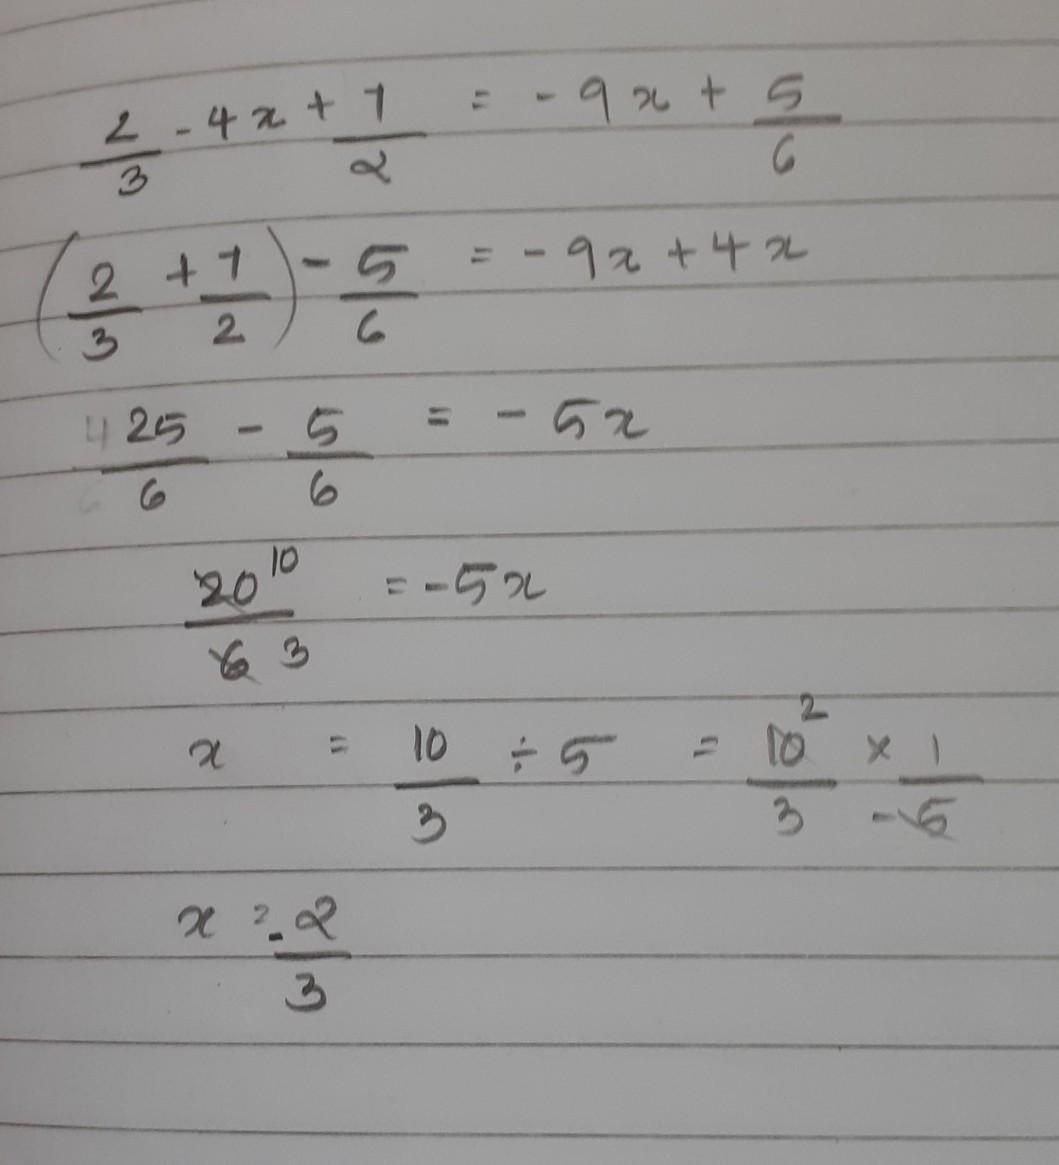 2/3 - 4x + 7/2 = -9x + 5/6
(2/3 + 7/2) - 5/6 = -9x + 4x
25/6 - 5/6 = -5x
20/6 10/3 = -5x
x = 10/3 ÷ 5 = 10/3 2 × 1/-5
x = -2/3